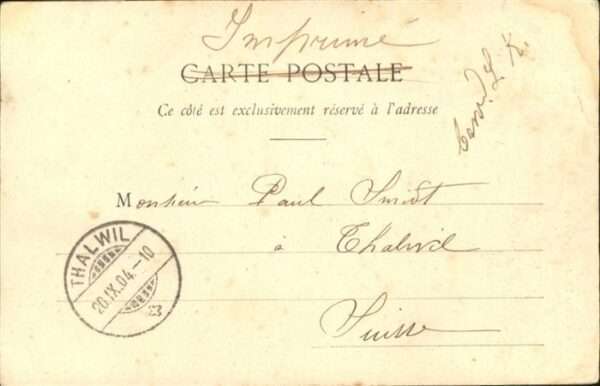 Imprimé
CARTE POSTALE
Ce côté est exclusivement réservé à l'adresse
Monsieur Paul
à Thalwil
Suisse
THALWIL
20.IX.04.-10